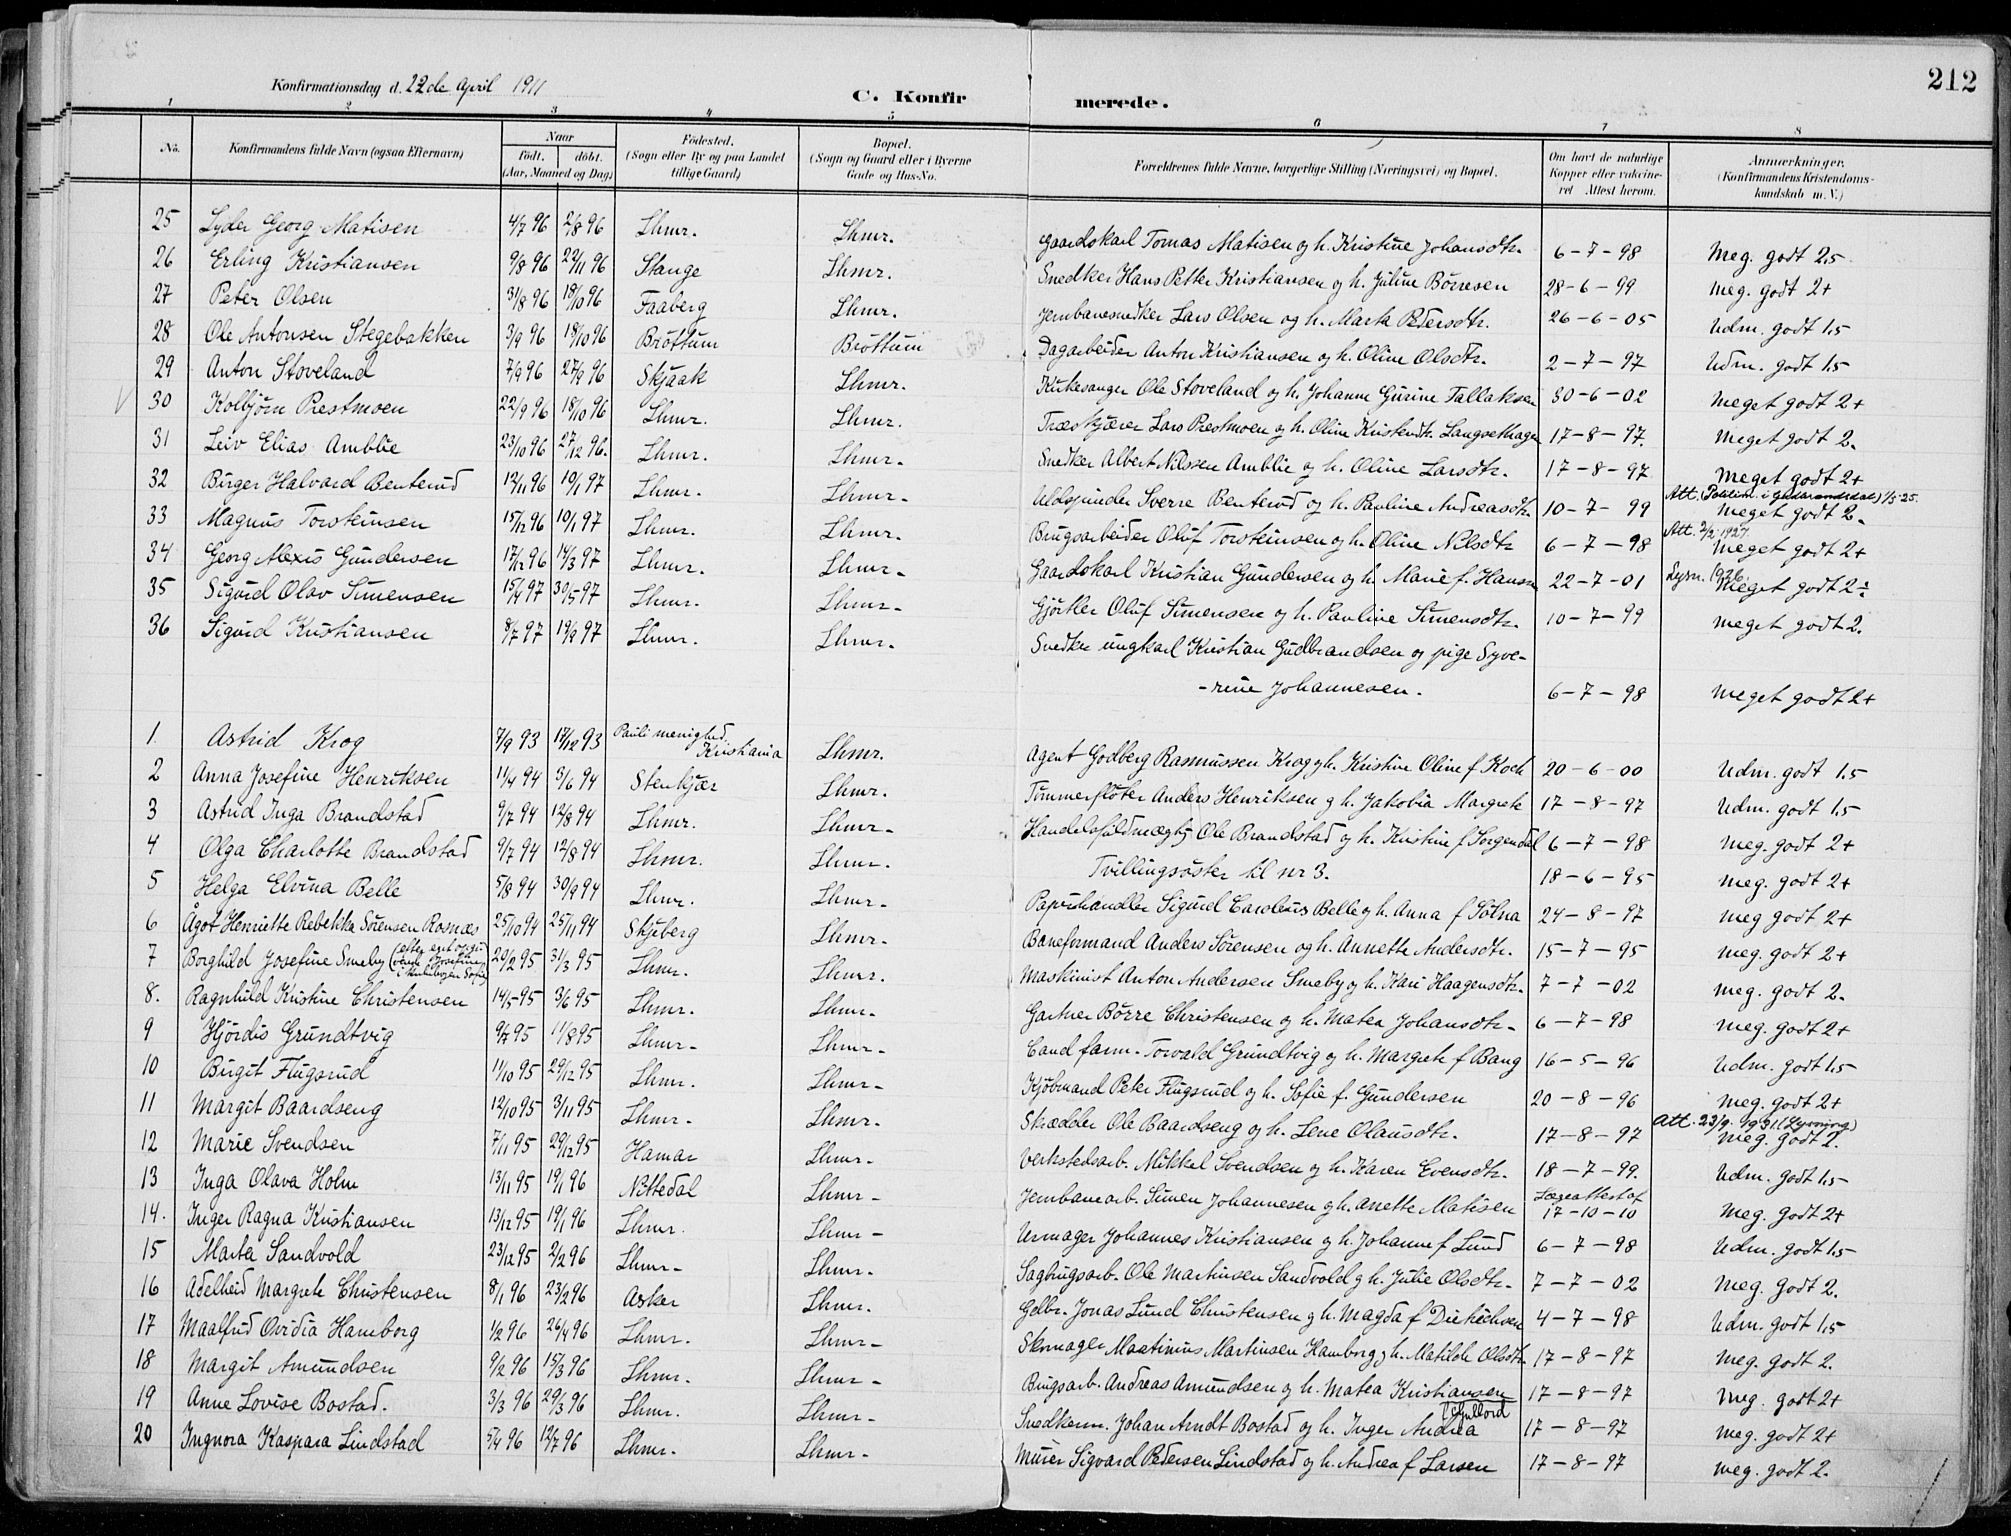 212
Konfirmationsdag d. 22de April 1911
C. Konfirmerede.
1 2 3 4 5 6 7 8
No. Konfirmandens fulde Navn (ogsaa Efternavn) Naar födt. döbt. (Aar, Maaned og Dag) Födested. (Sogn eller By og paa Landet tillige Gaard) Bopæl. (Sogn og Gaard eller i Byerne Gade og Hus-No. Forældrenes fulde Navne, borgerlige Stilling (Næringsvei) og Bopæl. Om havt de naturlige Kopper eller vakcineret Attest herom. Anmærkninger. (Konfirmandens Kristendomskundskab m. V.)
25 Lyder Georg Matisen 4/7 96 2/8 96 Lhmr. Lhmr. Gaardskarl Tomas Matisen og h. Kristine Johansdtr. 6-7-98 Meg. godt 2,5
26 Erling Kristiansen 9/8 96 22/11 96 Stange Lhmr. Snedker Hans Petter Kristiansen og h. Juline Börresen 28-6-99 Meg. godt 2+
27 Peter Olsen 31/8 96 18/10 96 Faaberg Lhmr. Jernbanesnedker Lars Olsen og h. Marte Pedersdtr. 26-6-05 Udm. godt 1,5
28 Ole Antonsen Stegebakken 3/9 96 18/10 96 Bröttum Bröttum Dagarbeider Anton Kristiansen og h. Oline Olsdtr. 2-7-97 Udm. godt 1,5
29 Anton Stoveland 7/9 96 27/9 96 Skjaak Lhmr. Kirkesanger Ole Stoveland og h. Johanne Gurine Tallaksen 30-6-02 Meget godt 2+
30 Kolbjörn Prestmoen 22/9 96 18/10 96 Lhmr. Lhmr. Træskjærer Lars Prestmoen og h. Oline Kristendtr. Langsethagen 17-8-97. Meget godt 2.
31 Leiv Elias Amblie 23/10 96 27/12 96. Lhmr. Lhmr. Snedker Albert Nilssen Amblie og h. Oline Larsdtr. 17-8-97 Meget godt 2+
32 Birger Halvard Benterud 12/11 96 10/1 97 Lhmr. Lhmr. Uldspinder Sverre Benterud og h. Pauline Andreasdtr. 10-7-99 Att. (Politim. i Gudbrandsdal) 1/5 25. Meget godt 2.
33 Magnus Torsteinsen 15/12 96 10/1 97 Lhmr. Lhmr. Brugsarbeider Oluf Torsteinsen og h. Oline Nilsdtr 6-7-98 Att. 2/2 1927. Meget godt 2+
34 Georg Alexis Gundersen 17/12 96 14/3 97 Lhmr. Lhmr. Gaardskarl Kristian Gundersen og h. Marie f. Hansen 22-7-01 Lysn. 1926. Meget godt 2÷
35 Sigurd Olav Simensen 15/4 97 30/5 97 Lhmr. Lhmr. Gjörtler Oluf Simensen og h. Pauline Simensdtr. 10-7-99 Meget godt 2.
36 Sigurd Kristiansen 8/7 97 19/9 97 Lhmr. Lhmr. Snedker ungkarl Kristian Gudbrandsen og pige Syve-
-rine Johannesen. 6-7-98 Meget godt 2+
1. Astrid Krog 7/9 93 17/12 93 Pauli menighed. Kristiania Lhmr. Agent Godberg Rasmussen Krog og h. Kristine Oline f Koch 20-6-00 Udm. godt 1,5
2 Anna Josefine Henriksen 11/4 94 3/6 94 Stenkjær Lhmr. Tömmerflöter Anders Henriksen og h. Jakobia Margrete 17-8-97 Udm. godt 1,5
3 Astrid Inga Brandstad 9/7 94 12/8 94 Lhmr. Lhmr. Handelsfuldmægtig Ole Brandstad og h. Kristine f Sorgendal 6-7-98 Meg. godt 2+
4 Olga Charlotte Brandstad 9/7 94 12/8 94 Lhmr. Lhmr. Tvillingsöster til nr 3. 18-6-95 Meg. godt 2+
5 Helga Elvina Belle 5/8 94 30/9 94 Lhmr. Lhmr. Papirhandler Sigurd Carelius Belle og h. Anna f Solna 24-8-97 Meg. godt 2+
6 Ågot Henriette Rebekka Sörensen Rosnæs 25/10 94 25/11 94 Skjeberg Lhmr. Baneformand Anders Sörensen og h. Annette Andersdtr. 15-7-95 Meg. godt 2+
7 Borghild Josefine Smeby (efter eget opgivende Josefine, i kirkebogen Sofie) 20/2 95 31/3 95 Lhmr. Lhmr. Maskinist Anton Andersen Smeby og h. Kari Haagensdtr. 7-7-02 Meg. godt 2.
8. Ragnhild Kristine Christensen 14/5 95 3/6 95 Lhmr. Lhmr. Gartner Börre Christensen og h. Matea Johansdtr. 6-7-98 Meg. godt 2+
9 Hjördis Grundtvig 9/7 95 11/8 95 Lhmr. Lhmr. Cand farm. Torvald Grundtvig og h. Margrete f Bang 16-5-96 Udm. godt 1,5
10 Birgit Flugsrud 11/10 95 29/12 95 Lhmr. Lhmr. Kjöbmand Peter Flugsrud og h. Sofie f. Gundersen 20-8-96 Meg. godt 2+
11 Margit Baardseng 12/10 95 3/11 95 Lhmr. Lhmr. Skrædder Ole Baardseng og h. Lene Olausdtr. 17-8-97 Att. 23/9 1931. (Lysning) Meg. godt 2.
12 Marie Svendsen 7/11 95 29/12 95 Hamar Lhmr. Verkstedsarb. Mikkel Svendsen og h. Karen Evensdtr. 18-7-99. Udm. godt 1,5
13 Inga Olava Holm 13/11 95 19/1 96 Nittedal Lhmr. Jernbanearb. Simen Johannesen og h. Anette Matisen Lægeattest af 17-10-10 Meg. godt 2+
14. Inger Ragna Kristiansen 13/12 95 19/1 96 Lhmr. Lhmr. Urmager Johannes Kristiansen og h. Johanne f Lund 6-7-98 Udm. godt 1,5
15 Marta Sandvold 23/12 95 2/2 96 Lhmr. Lhmr. Sagbrugsarb. Ole Martinsen Sandvold og h. Julie Olsdtr. 7-7-02 Meg. godt 2.
16 Adelheid Margrete Christensen 8/1 96 23/2 96 Asker Lhmr. Gelbr. Jonas Lund Christensen og h. Magda f Dietrichsen 4-7-98 Udm. godt 1,5
17 Maalfrid Ovidia Hamborg 1/2 96 26/4 96 Lhmr. Lhmr. Skomager Maatinius Martinsen Hamborg og h. Matilde Olsdtr. 17-8-97 Meg. godt 2.
18 Margit Amundsen 9/2 96 15/3 96 Lhmr. Lhmr. Brugsarb. Andreas Amundsen og h. Matea Kristiansen 17-8-97 Meg. godt 2+
19 Anne Lovise Bostad. 3/3 96 29/3 96 Lhmr. Lhmr. Snedkerm. Johan Arndt Bostad og h. Inger Andrea f Gullord 17-8-97 Meg. godt 2+
20 Ingnora Kaspara Lindstad 5/4 96 12/7 96 Lhmr. Lhmr. Murer Sigvard Pedersen Lindstad og h. Andrea f Larsen 17-8-97 Meg. godt 2.